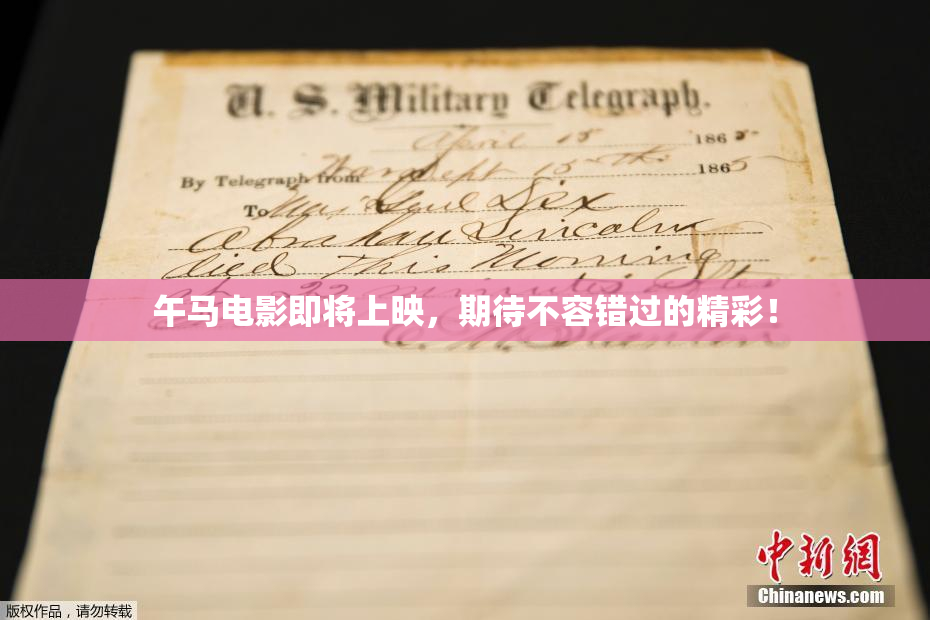 U. S. Military Telegraph.
April 15 1865-
By Telegraph from War Dept 15th 1865
To Maj Genl Dix
Abraham Lincoln
died This Morning
at 22 minutes after
午马电影即将上映，期待不容错过的精彩！
E. M. Stanton
中新网
Chinanews.com
版权作品，请勿转载